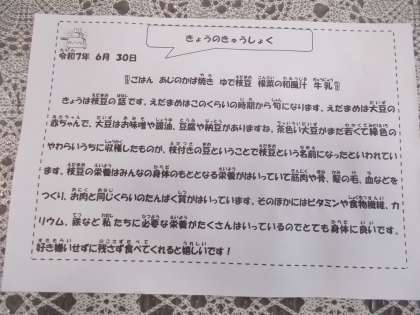 きょうのきゅうしょく
令和7年 6月 30日
ごはん あじのかば焼き ゆで枝豆 根菜の和風汁 牛乳
きょうは枝豆の話です。えだまめはこのくらいの時期から旬になります。えだまめは大豆の
赤ちゃんで、大豆はお味噌や醤油、豆腐や納豆がありますね。茶色い大豆がまだ若くて緑色の
やわらいうちに収穫したものが、枝付きの豆ということで枝豆という名前になったといわれてい
ます。枝豆の栄養はみんなの身体のもととなる栄養がはいっていて筋肉や骨、髪の毛、血などを
つくり、お肉と同じくらいのたんぱく質がはいっています。そのほかにはビタミンや食物繊維、カ
リウム、鉄など私たちに必要な栄養がたくさんはいっているのでとても身体に良いです。
好き嫌いせずに残さず食べてくれると嬉しいです！